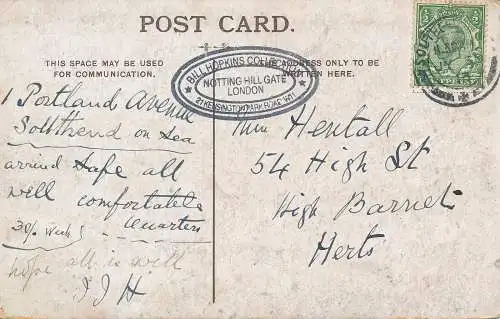 POST CARD.
THIS SPACE MAY BE USED
FOR COMMUNICATION.
THE ADDRESS ONLY TO BE
WRITTEN HERE.
BILL HOPKINS COLLECTION
NOTTING HILL GATE
LONDON
1 Portland Avenue
Southend on Sea
arrived safe all
well comfortable
quarters
30/- Week
hope all is well
J J H
Hentall
54 High St
High Barnet
Herts